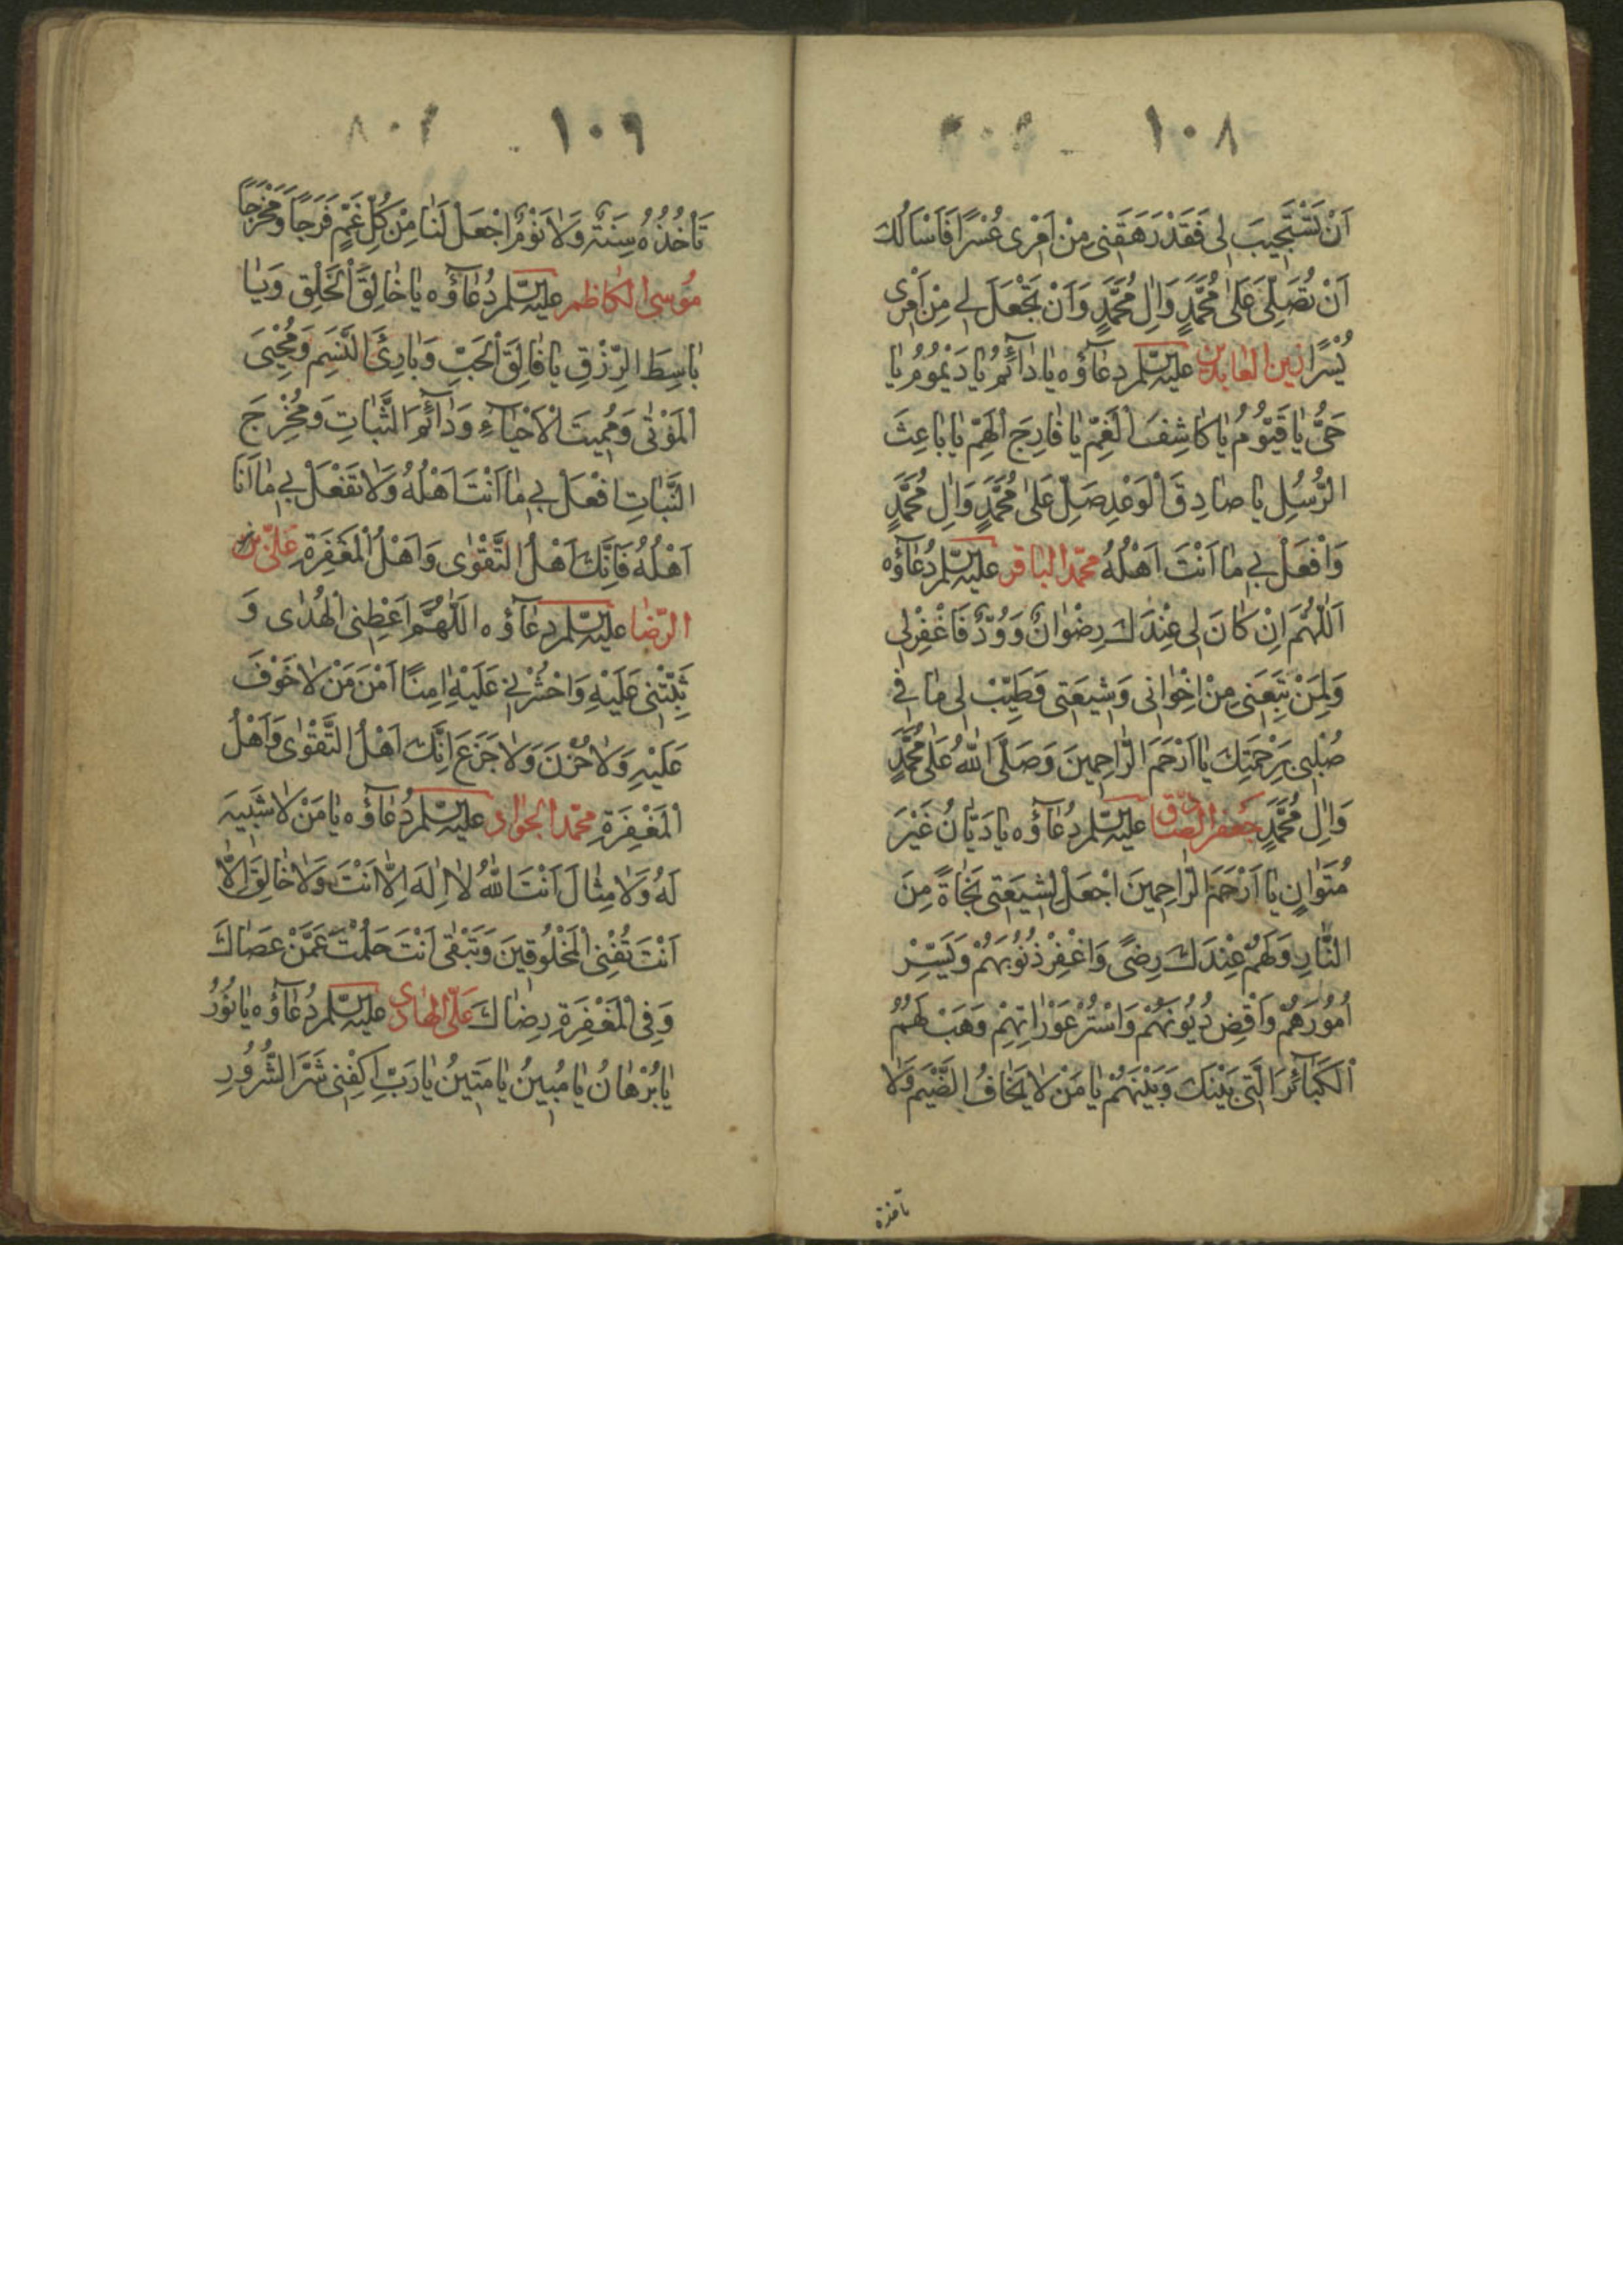 ١٠٨
اَنْ تَسْتَجِيبَ لِى فَقَدْ رَهَقَنِى مِنْ اَمْرِى عُسْرًا فَاَسْاَلُكَ
اَنْ تُصَلِّىَ عَلٰى مُحَمَّدٍ وَاٰلِ مُحَمَّدٍ وَاَنْ تَجْعَلَ لِى مِنْ اَمْرِى
يُسْرًا زين العابدين عليه السلم دعاؤه يا دائم يا ديموم يا
حَىُّ يا قَيُّومُ يا كاشِفَ الْغَمِّ يا فارِجَ الْهَمِّ يا باعِثَ
الرُّسُلِ يا صادِقَ الْوَعْدِ صَلِّ عَلٰى مُحَمَّدٍ وَاٰلِ مُحَمَّدٍ
وَافْعَلْ بِى ما اَنْتَ اَهْلُهُ محمد الباقر عليه السلم دُعاؤه
اَللّٰهُمَّ اِنْ كانَ لِى عِنْدَكَ رِضْوانٌ وَوُدٌّ فَاغْفِرْلِى
وَلِمَنْ تَبِعَنِى مِنْ اِخْوانِى وَشِيعَتِى وَطَيِّبْ لِى ما فِى
صُلْبِى بِرَحْمَتِكَ يا اَرْحَمَ الرّاحِمِينَ وَصَلَّى اللّٰهُ عَلٰى مُحَمَّدٍ
وَاٰلِ مُحَمَّدٍ جعفر الصادق عليه السلم دُعاؤه يا دَيّانُ غَيْرَ
مُتَوانٍ يا اَرْحَمَ الرّاحِمِينَ اجْعَلْ لِشِيعَتِى نَجاةً مِنَ
النّارِ وَلَهُمْ عِنْدَكَ رِضًى وَاغْفِرْ ذُنُوبَهُمْ وَيَسِّرْ
اُمُورَهُمْ وَاقْضِ دُيُونَهُمْ وَاسْتُرْ عَوْراتِهِمْ وَهَبْ لَهُمُ
الْكَبائِرَ الَّتِى بَيْنَكَ وَبَيْنَهُمْ يا مَنْ لا يَخافُ الضَّيْمَ وَلا
تاخذه
١٠٩
تَأْخُذُهُ سِنَةٌ وَلا نَوْمٌ اجْعَلْ لَنا مِنْ كُلِّ غَمٍّ فَرَجًا وَمَخْرَجًا
موسى الكاظم عليه السلم دُعاؤه يا خالِقَ الْخَلْقِ وَيا
باسِطَ الرِّزْقِ يا فالِقَ الْحَبِّ وَبارِئَ النَّسَمِ وَمُحْيِىَ
الْمَوْتٰى وَمُمِيتَ الْاَحْياءِ وَدائِمَ الثَّباتِ وَمُخْرِجَ
النَّباتِ افْعَلْ بِى ما اَنْتَ اَهْلُهُ وَلا تَفْعَلْ بِى ما اَنَا
اَهْلُهُ فَاِنَّكَ اَهْلُ التَّقْوٰى وَاَهْلُ الْمَغْفِرَةِ على بن
الرضا عليه السلم دعاؤه اَللّٰهُمَّ اَعْطِنِى الْهُدٰى وَ
ثَبِّتْنِى عَلَيْهِ وَاحْشُرْنِى عَلَيْهِ اٰمِنًا اَمْنَ مَنْ لا خَوْفَ
عَلَيْهِ وَلا حُزْنَ وَلا جَزَعَ اِنَّكَ اَهْلُ التَّقْوٰى وَاَهْلُ
الْمَغْفِرَةِ محمد الجواد عليه السلم دُعاؤه يا مَنْ لا شَبِيهَ
لَهُ وَلا مِثالَ اَنْتَ اللّٰهُ لا اِلٰهَ اِلّا اَنْتَ وَلا خالِقَ اِلّا
اَنْتَ تُفْنِى الْمَخْلُوقِينَ وَتَبْقٰى اَنْتَ حَلُمْتَ عَمَّنْ عَصاكَ
وَفِى الْمَغْفِرَةِ رِضاكَ على الهادى عليه السلم دُعاؤه يا نُورُ
يا بُرْهانُ يا مُبِينُ يا مَتِينُ يا رَبِّ اكْفِنِى شَرَّ الشُّرُورِ